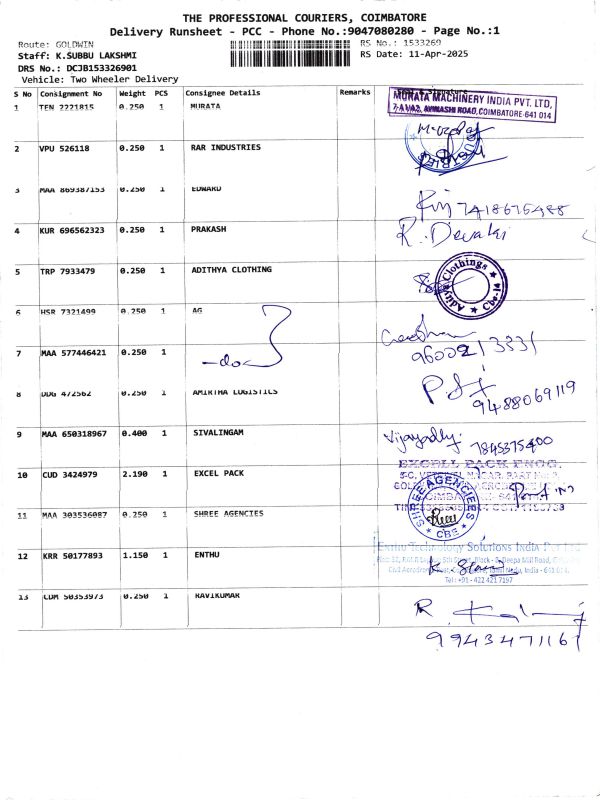 THE PROFESSIONAL COURIERS, COIMBATORE
Delivery Runsheet - PCC - Phone No.:9047080280 - Page No.:1
Route: GOLDWIN RS No.: 1533269
Staff: K.SUBBU LAKSHMI RS Date: 11-Apr-2025
DRS No.: DCJB153326901
Vehicle: Two Wheeler Delivery
S No Consignment No Weight PCS Consignee Details Remarks Seal & Signature
1 TEN 2221815 0.250 1 MURATA
MURATA MACHINERY INDIA PVT. LTD,
AVINASHI ROAD, COIMBATORE-641 014
2 VPU 526118 0.250 1 RAR INDUSTRIES
3 MAA 869387153 0.250 1 EDWARD
7418675488
4 KUR 696562323 0.250 1 PRAKASH R. Devaki
5 TRP 7933479 0.250 1 ADITHYA CLOTHING
Adithya Clothings ★ Cbe-14 ★
6 HSR 7321499 0.250 1 AG
7 MAA 577446421 0.250 1 -do- 9600213331
8 DDG 472562 0.250 1 AMIRTHA LOGISTICS
9488069119
9 MAA 650318967 0.400 1 SIVALINGAM 7845375400
10 CUD 3424979 2.190 1 EXCEL PACK
EXCELL PACK
11 MAA 303536087 0.250 1 SHREE AGENCIES
SHREE AGENCIEES ★ CBE ★
12 KRR 50177893 1.150 1 ENTHU
Enthu Technology Solutions India Pvt Ltd
Tel: +91 - 422 421 7197
13 CDM 50353973 0.250 1 RAVIKUMAR
R
9943471161